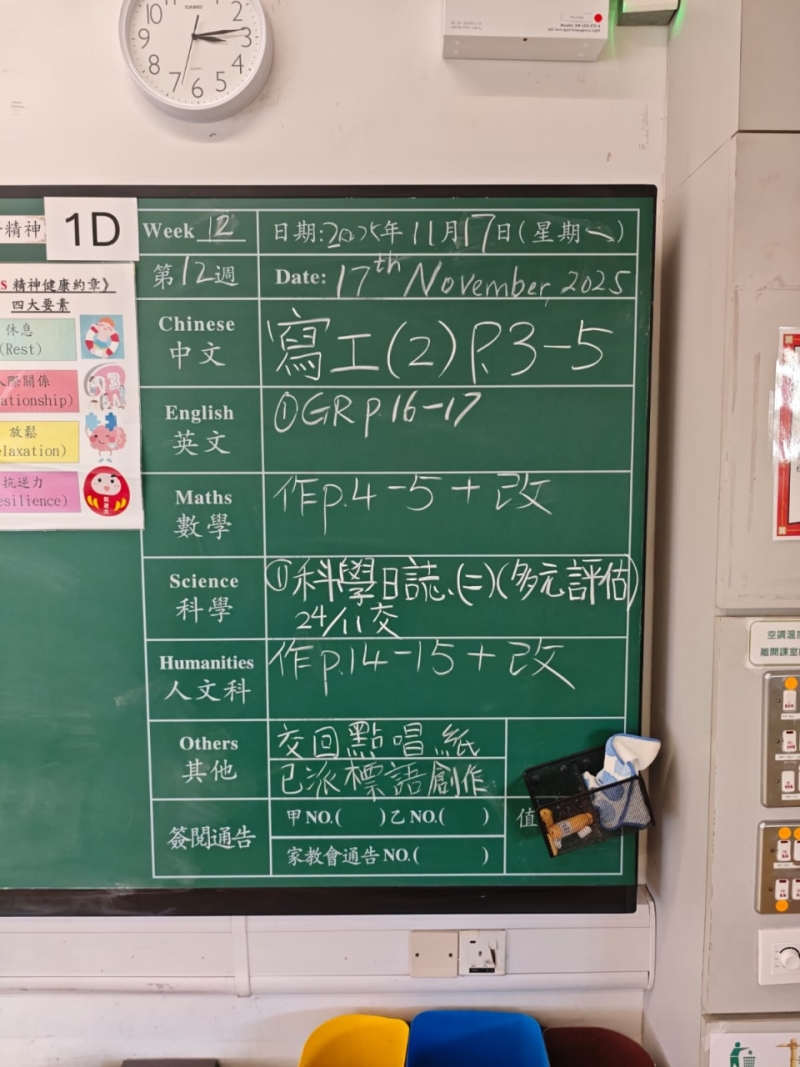 10
2
9
3
8
4
7
6
5
CASIO
精神
1D
Week 12
日期:2025年11月17日(星期一)
精神健康約章》
四大要素
第12週
Date: 17th November, 2025
休息
(Rest)
Chinese
中文
寫工(2) P.3-5
人際關係
放鬆
English
英文
①GR p.16-17
抗逆力
Maths
數學
作p.4-5+改
Science
科學
①科學日誌(二)(多元評估)
24/11交
Humanities
人文科
作p.14-15+改
Others
其他
交回點唱紙
已派標語創作
簽閱通告
甲NO.( )乙NO.( )
值
家教會通告NO.( )
空調溫
離開課室